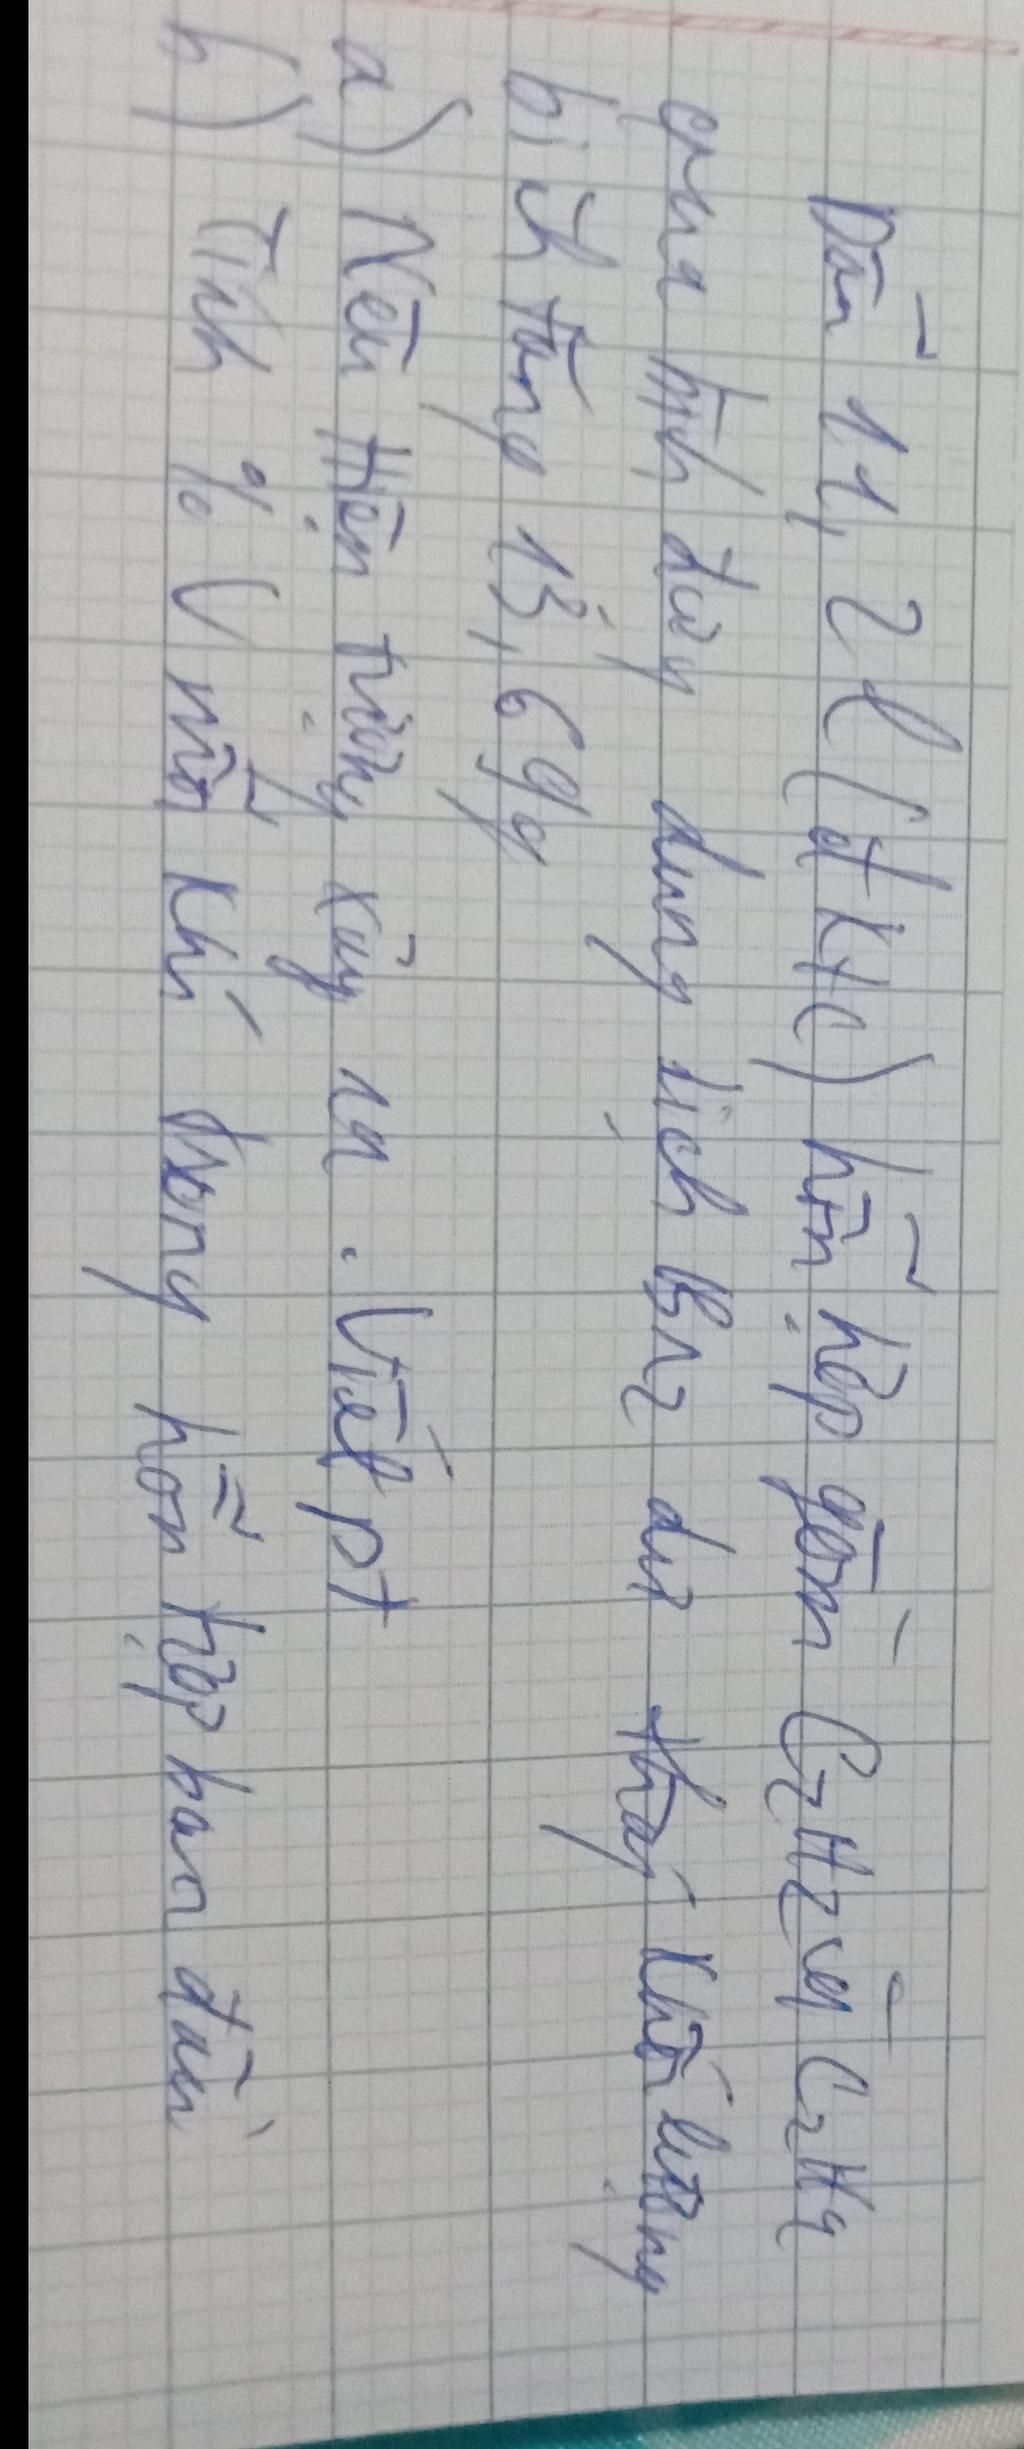 Dẫn 11,2 l (đktc) hỗn hợp gồm C2H2 và C2H4
qua bình đựng dung dịch Br2 dư thấy khối lượng
bình tăng 13,6 g
a) Nêu hiện tượng xảy ra. Viết pt
b) Tính % V mỗi khí trong hỗn hợp ban đầu